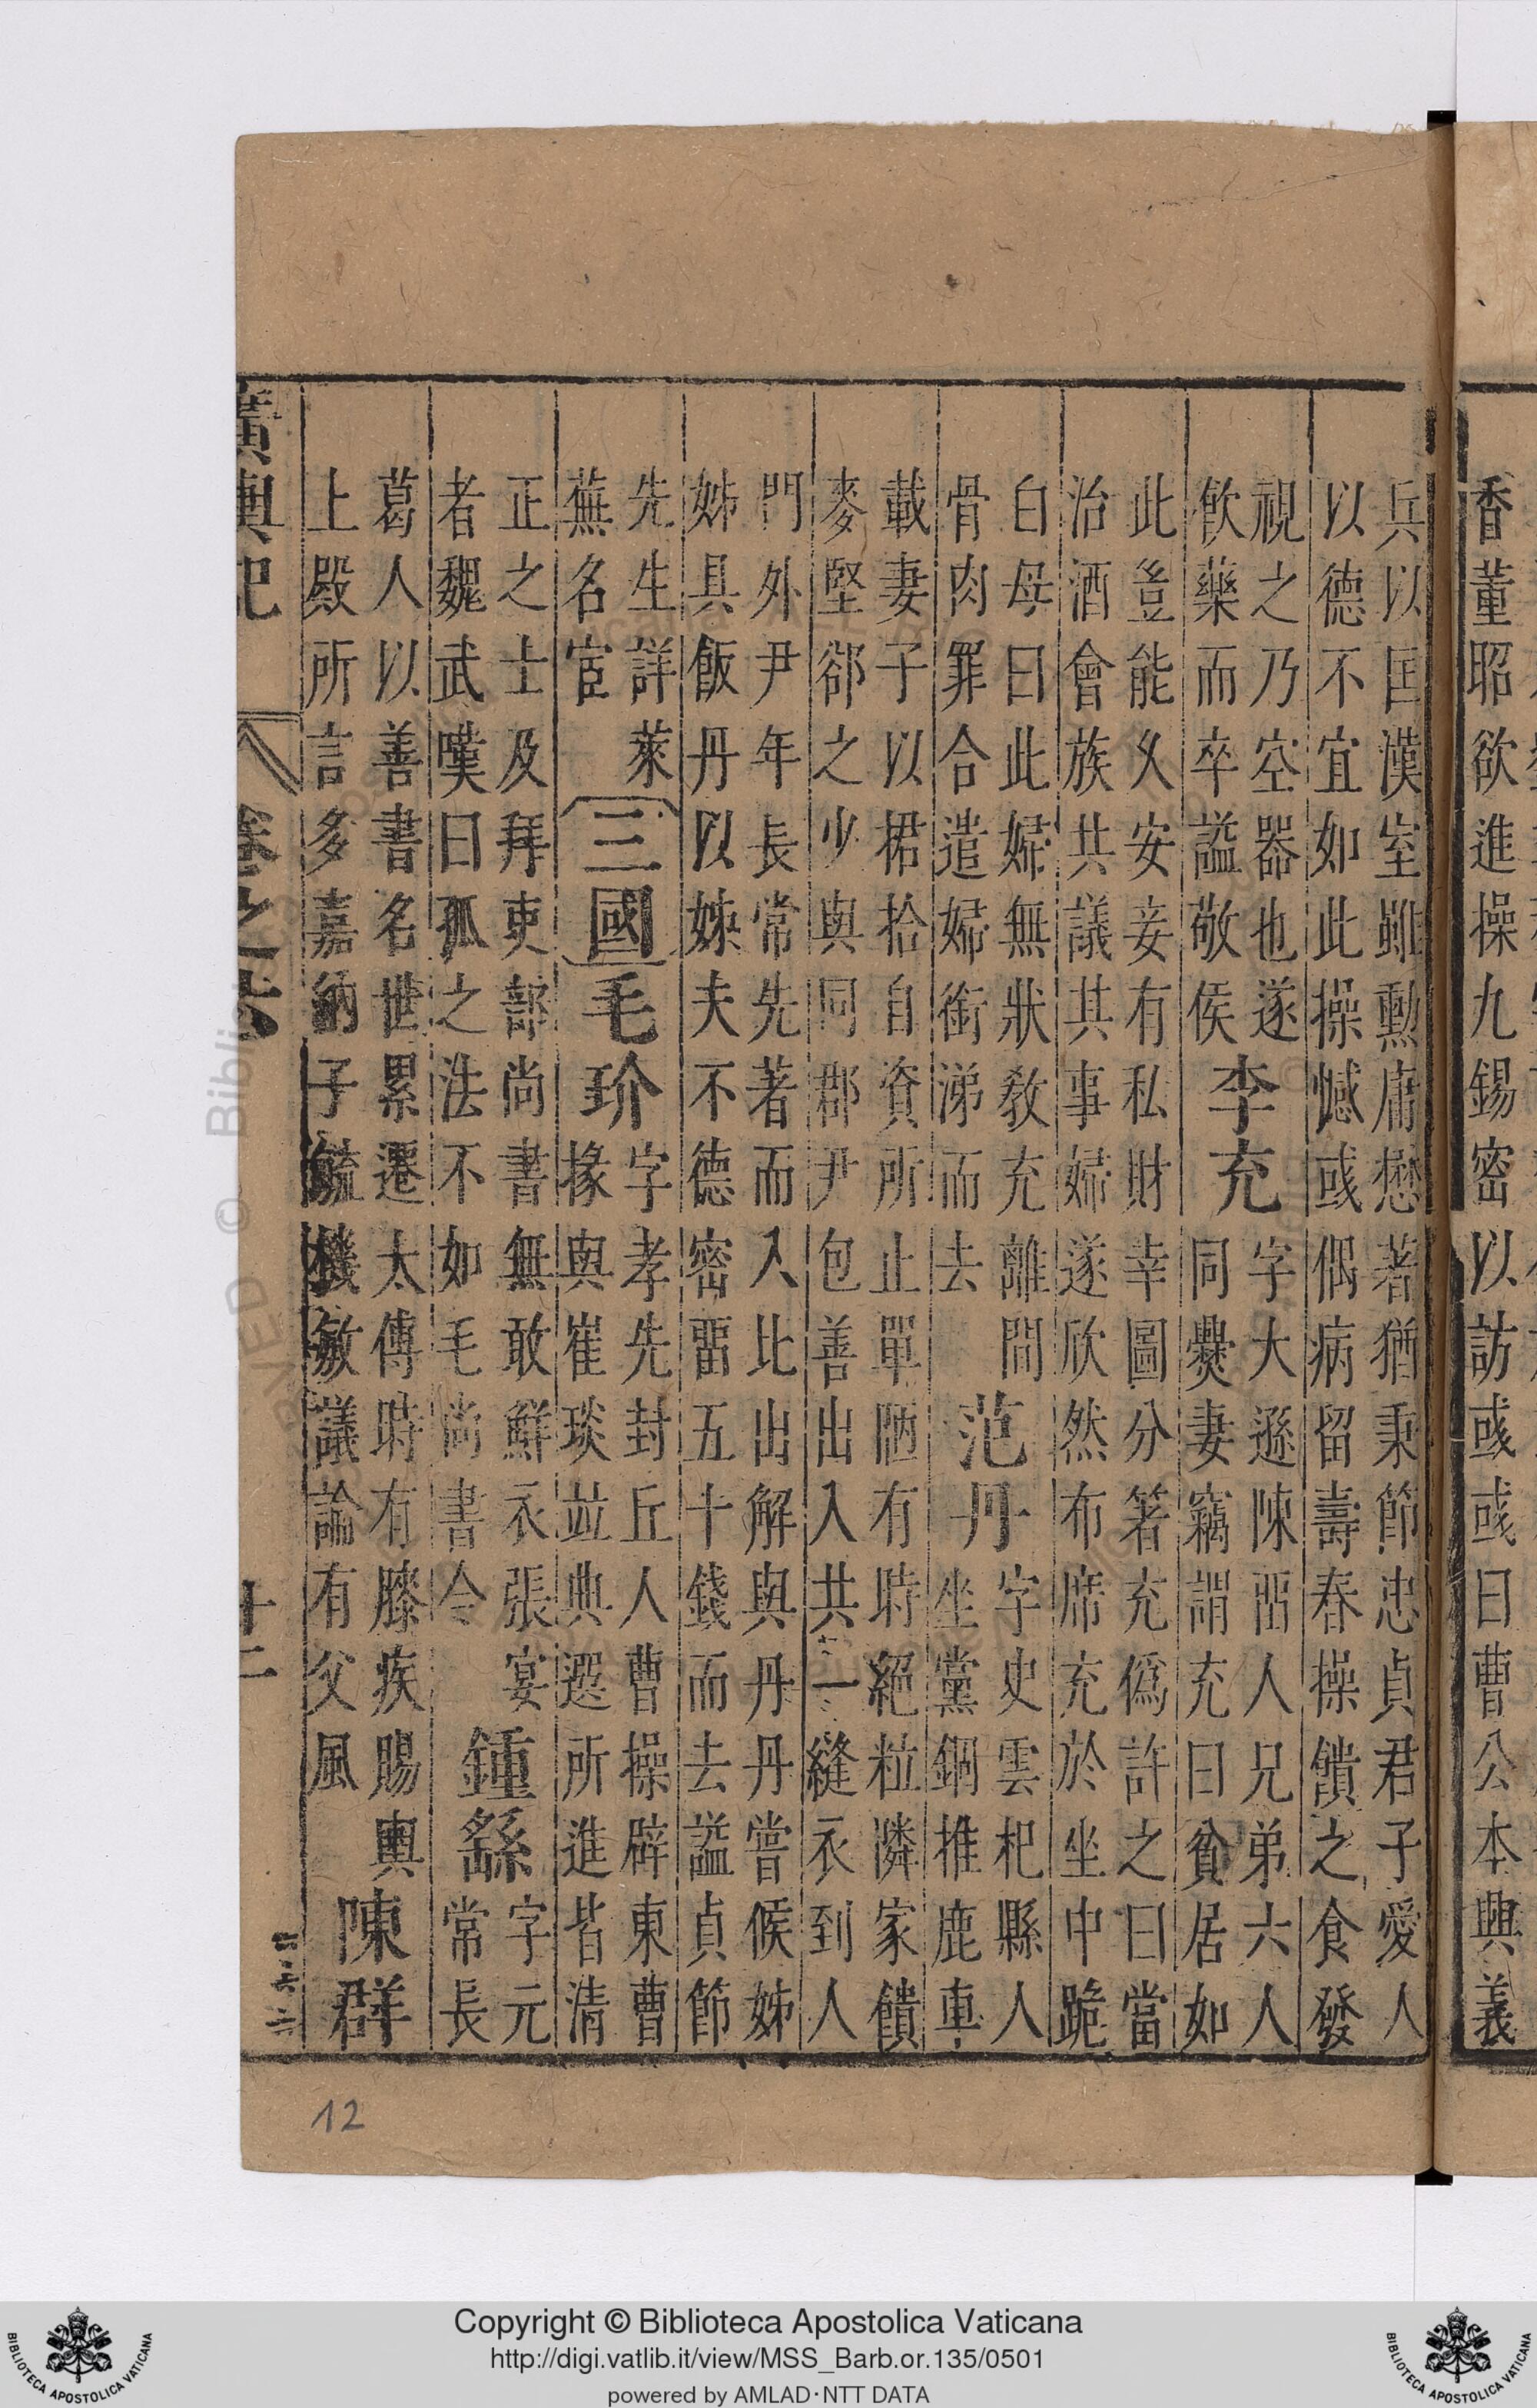 香董昭欲進操九錫密以訪彧彧曰曹公本興義
兵以匡漢室雖勳庸懋著猶秉節忠貞君子愛人
以德不宜如此操憾彧偶病留壽春操饋之食發
視之乃空器也遂
飲藥而卒諡敬侯
李充
字大遜陳畱人兄弟六人
同爨妻竊謂充曰貧居如
此豈能久安妾有私財幸圖分箸充偽許之曰當
治酒會族共議其事婦遂欣然布席充於坐中跪
白母曰此婦無狀敎充離間
骨肉罪合遣婦銜涕而去
范丹
字史雲杞縣人
坐黨錮推鹿車
載妻子以捃拾自資所止單陋有時絕粒隣家饋
麥堅郤之少與同郡尹包善出入共一縫衣到人
門外尹年長常先著而入比出解與丹丹嘗候姊
姊具飯丹以姊夫不德密畱五十錢而去諡貞節
先生詳萊
蕪名宦
三國
毛玠
字孝先封丘人曹操辟東曹
掾與崔琰並典選所進皆清
正之士及拜吏部尚書無敢鮮衣張宴
者魏武嘆曰孤之法不如毛尚書令
鍾繇
字元
常長
葛人以善書名世累遷太傅時有膝疾賜輿
上殿所言多嘉納子毓機敏議論有父風
陳群
廣輿記 卷之六 十二
12
Copyright © Biblioteca Apostolica Vaticana
http://digi.vatlib.it/view/MSS_Barb.or.135/0501
powered by AMLAD·NTT DATA
BIBLIOTECA APOSTOLICA VATICANA
BIBLIOTECA APOSTOLICA VATICANA